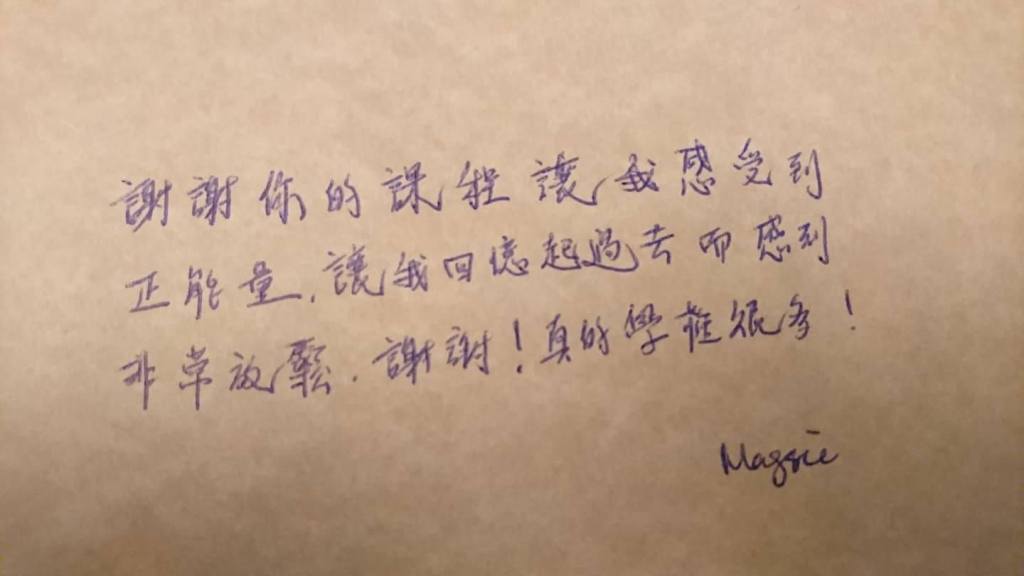 謝謝你的課程讓我感受到
正能量,讓我回憶起過去而感到
非常放鬆.謝謝!真的學很多!
Maggie